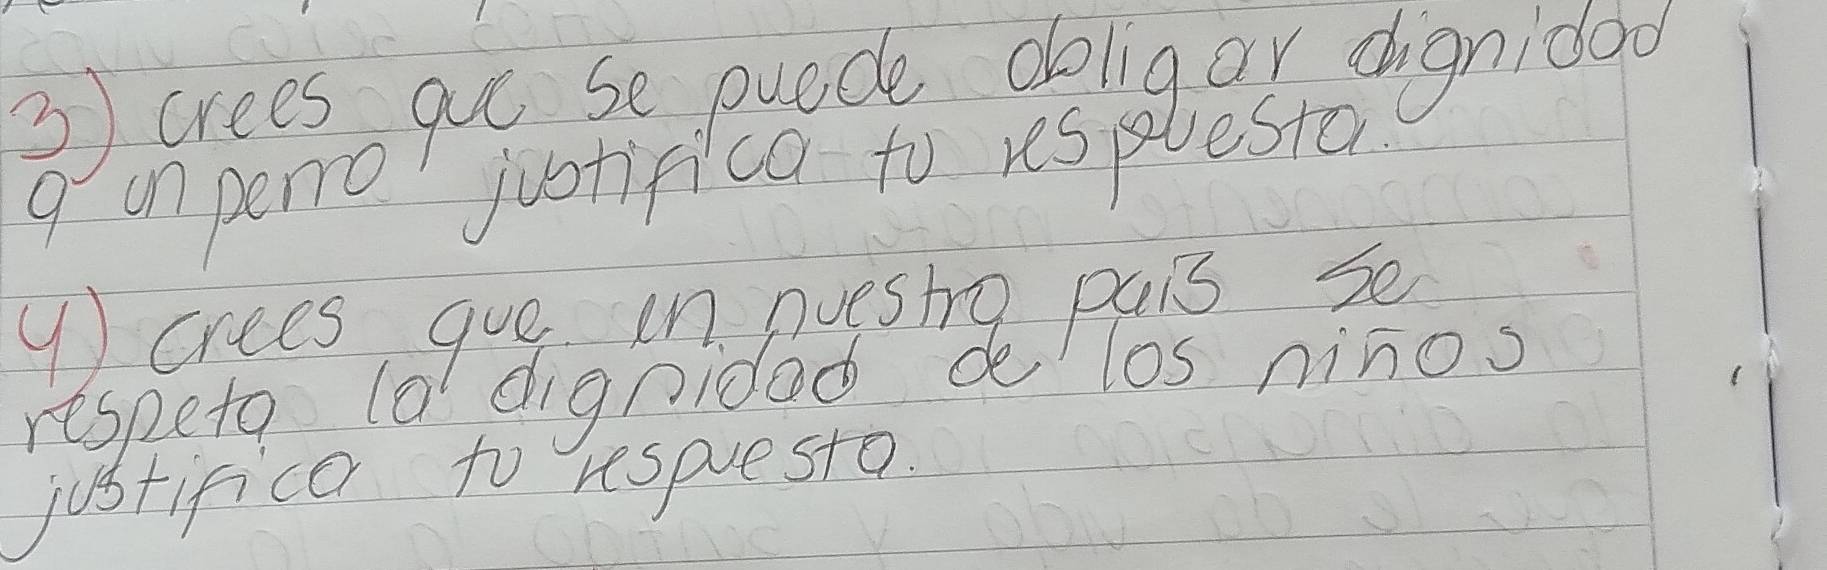 3) crees que se puede obligar dignidad
a un perro justifica tu respuesta.
4) crees que en nuestro país se
respeta la dignidad de los niños
justifica tu respuesta.